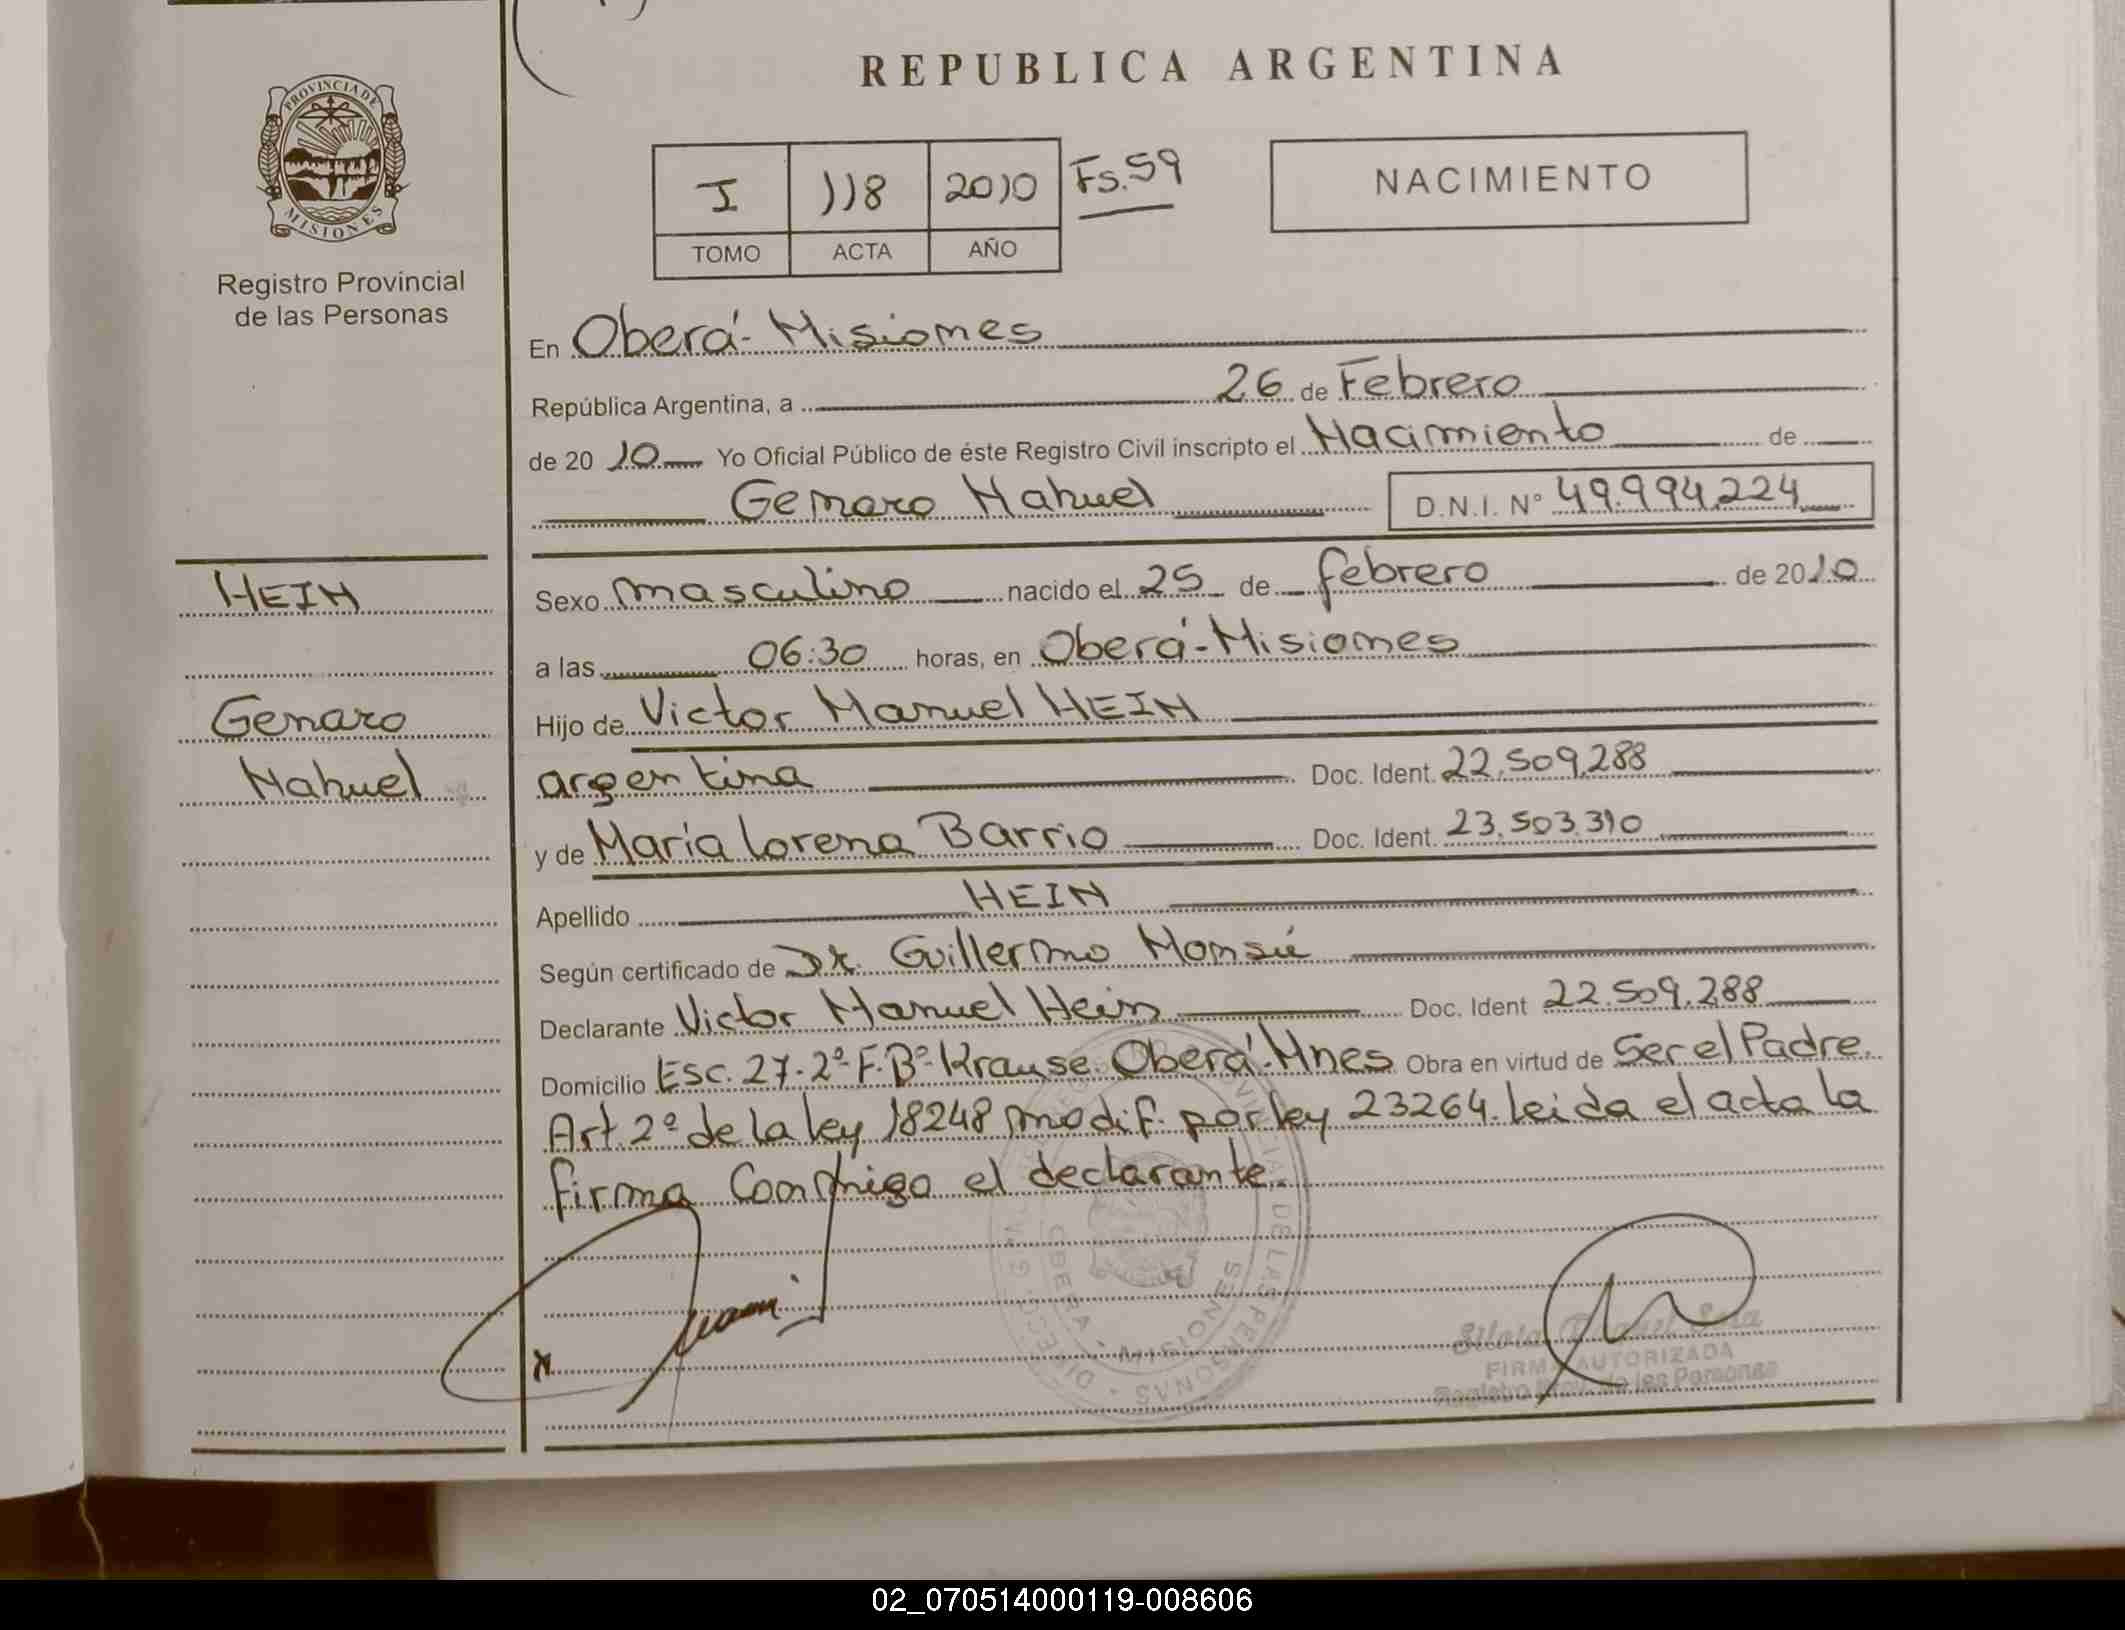 REPUBLICA ARGENTINA
PROVINCIA DE
MISIONES
Registro Provincial
de las Personas
I 118 2010 Fs.59
TOMO ACTA AÑO
NACIMIENTO
En Oberá-Misiones
República Argentina, a 26 de Febrero
de 2010 Yo Oficial Público de éste Registro Civil inscripto el Nacimiento de
Genaro Nahuel D.N.I. Nº 49.994.224
HEIN
Genaro
Nahuel
Sexo masculino nacido el 25 de febrero de 2010
a las 06:30 horas, en Oberá-Misiones
Hijo de Victor Manuel HEIN
argentina Doc. Ident. 22.509.288
y de María Lorena Barrio Doc. Ident. 23.503.310
Apellido HEIN
Según certificado de Dr. Guillermo Monsú
Declarante Victor Manuel Hein Doc. Ident 22.509.288
Domicilio Esc. 27-2º-F.Bº-Krause. Oberá-Mnes Obra en virtud de Ser el Padre.
Art. 2º de la ley 18248 modif. por ley 23264. leida el acta la
firma Conmigo el declarante.
OBERA - MISIONES
FIRMA AUTORIZADA
Registro Prov. de las Personas
02_070514000119-008606